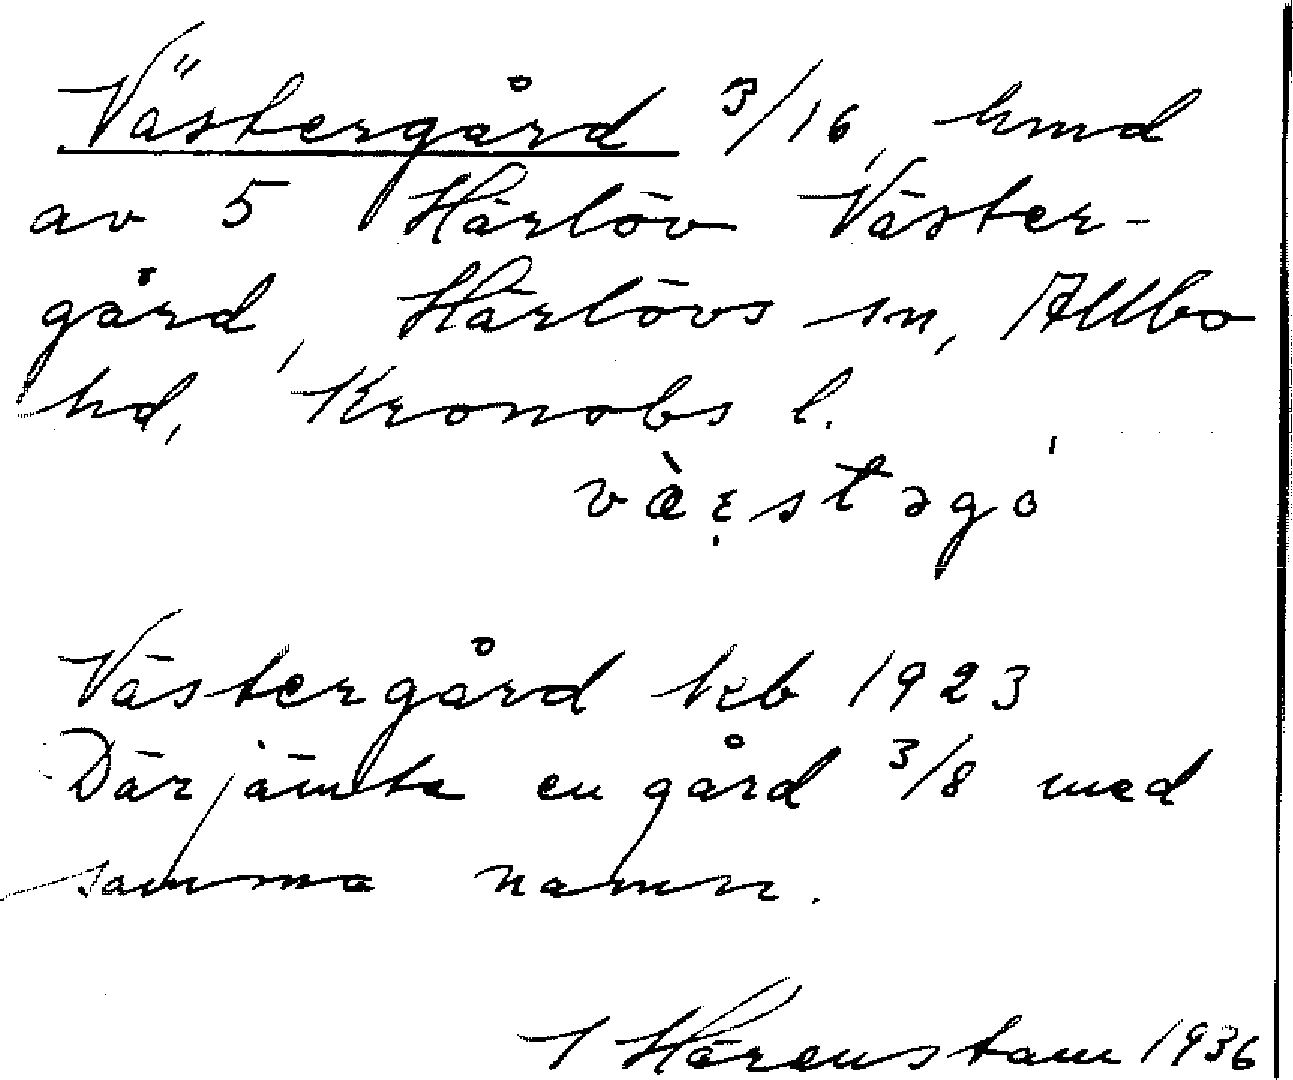 Västergård 3/16, hmd
av 5 Härlöv Väster-
gård, Härlövs sn, Allbo
hd, Kronobs l.
Västergård kb 1923
Därjämte en gård 3/8 med
samma namn.
Härenstam 1936